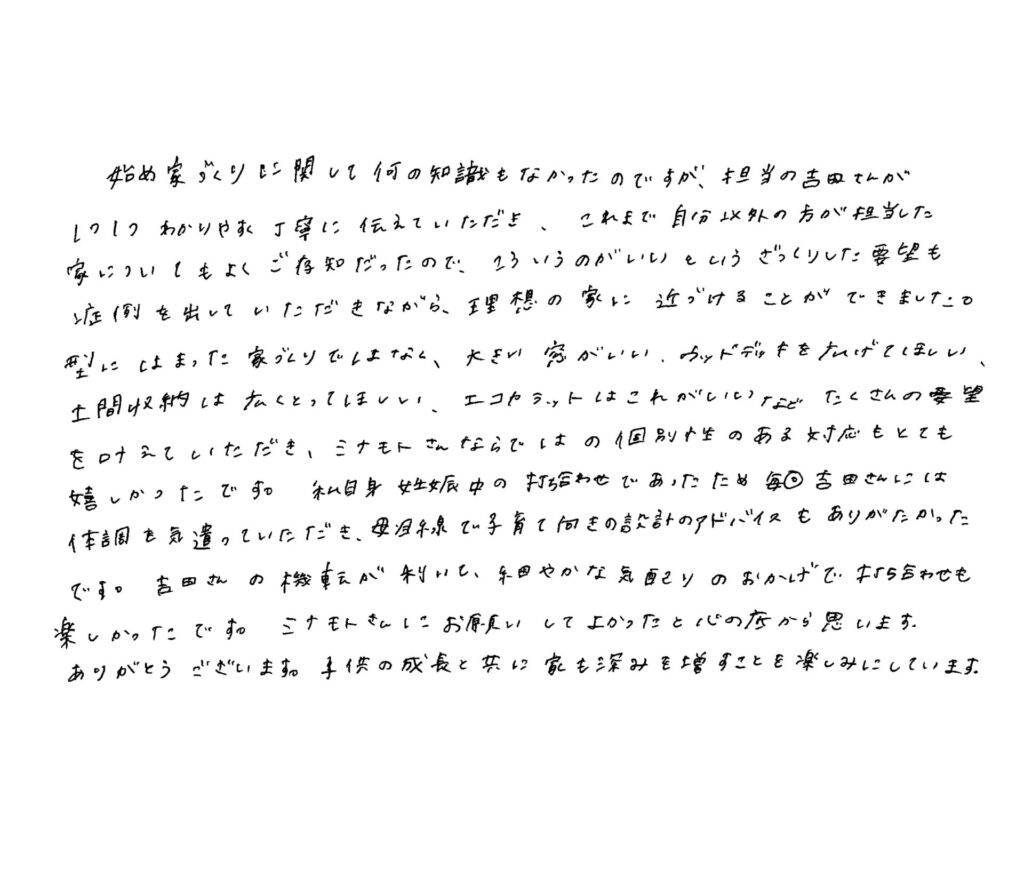 始め家づくりに関して何の知識もなかったのですが、担当の吉田さんが
1つ1つわかりやすく丁寧に伝えていただき、これまで自分以外の方が担当した
家についてもよくご存知だったので、こういうのがいいというざっくりした要望も
症例を出していただきながら、理想の家に近づけることができました。
型にはまった家づくりではなく、大きい窓がいい、ウッドデッキを広げてほしい、
土間収納は広くとってほしい、エコカラットはこれがいいなどたくさんの要望
を叶えていただき、ミナモトさんならではの個別性のある対応もとても
嬉しかったです。私自身妊娠中の打ち合わせであったため毎回吉田さんには
体調を気遣っていただき、母目線で子育て向きの設計のアドバイスもありがたかった
です。吉田さんの機転が利いて、細やかな気配りのおかげで打ち合わせも
楽しかったです。ミナモトさんにお願いしてよかったと心の底から思います。
ありがとうございます。子供の成長と共に家も深みを増すことを楽しみにしています。